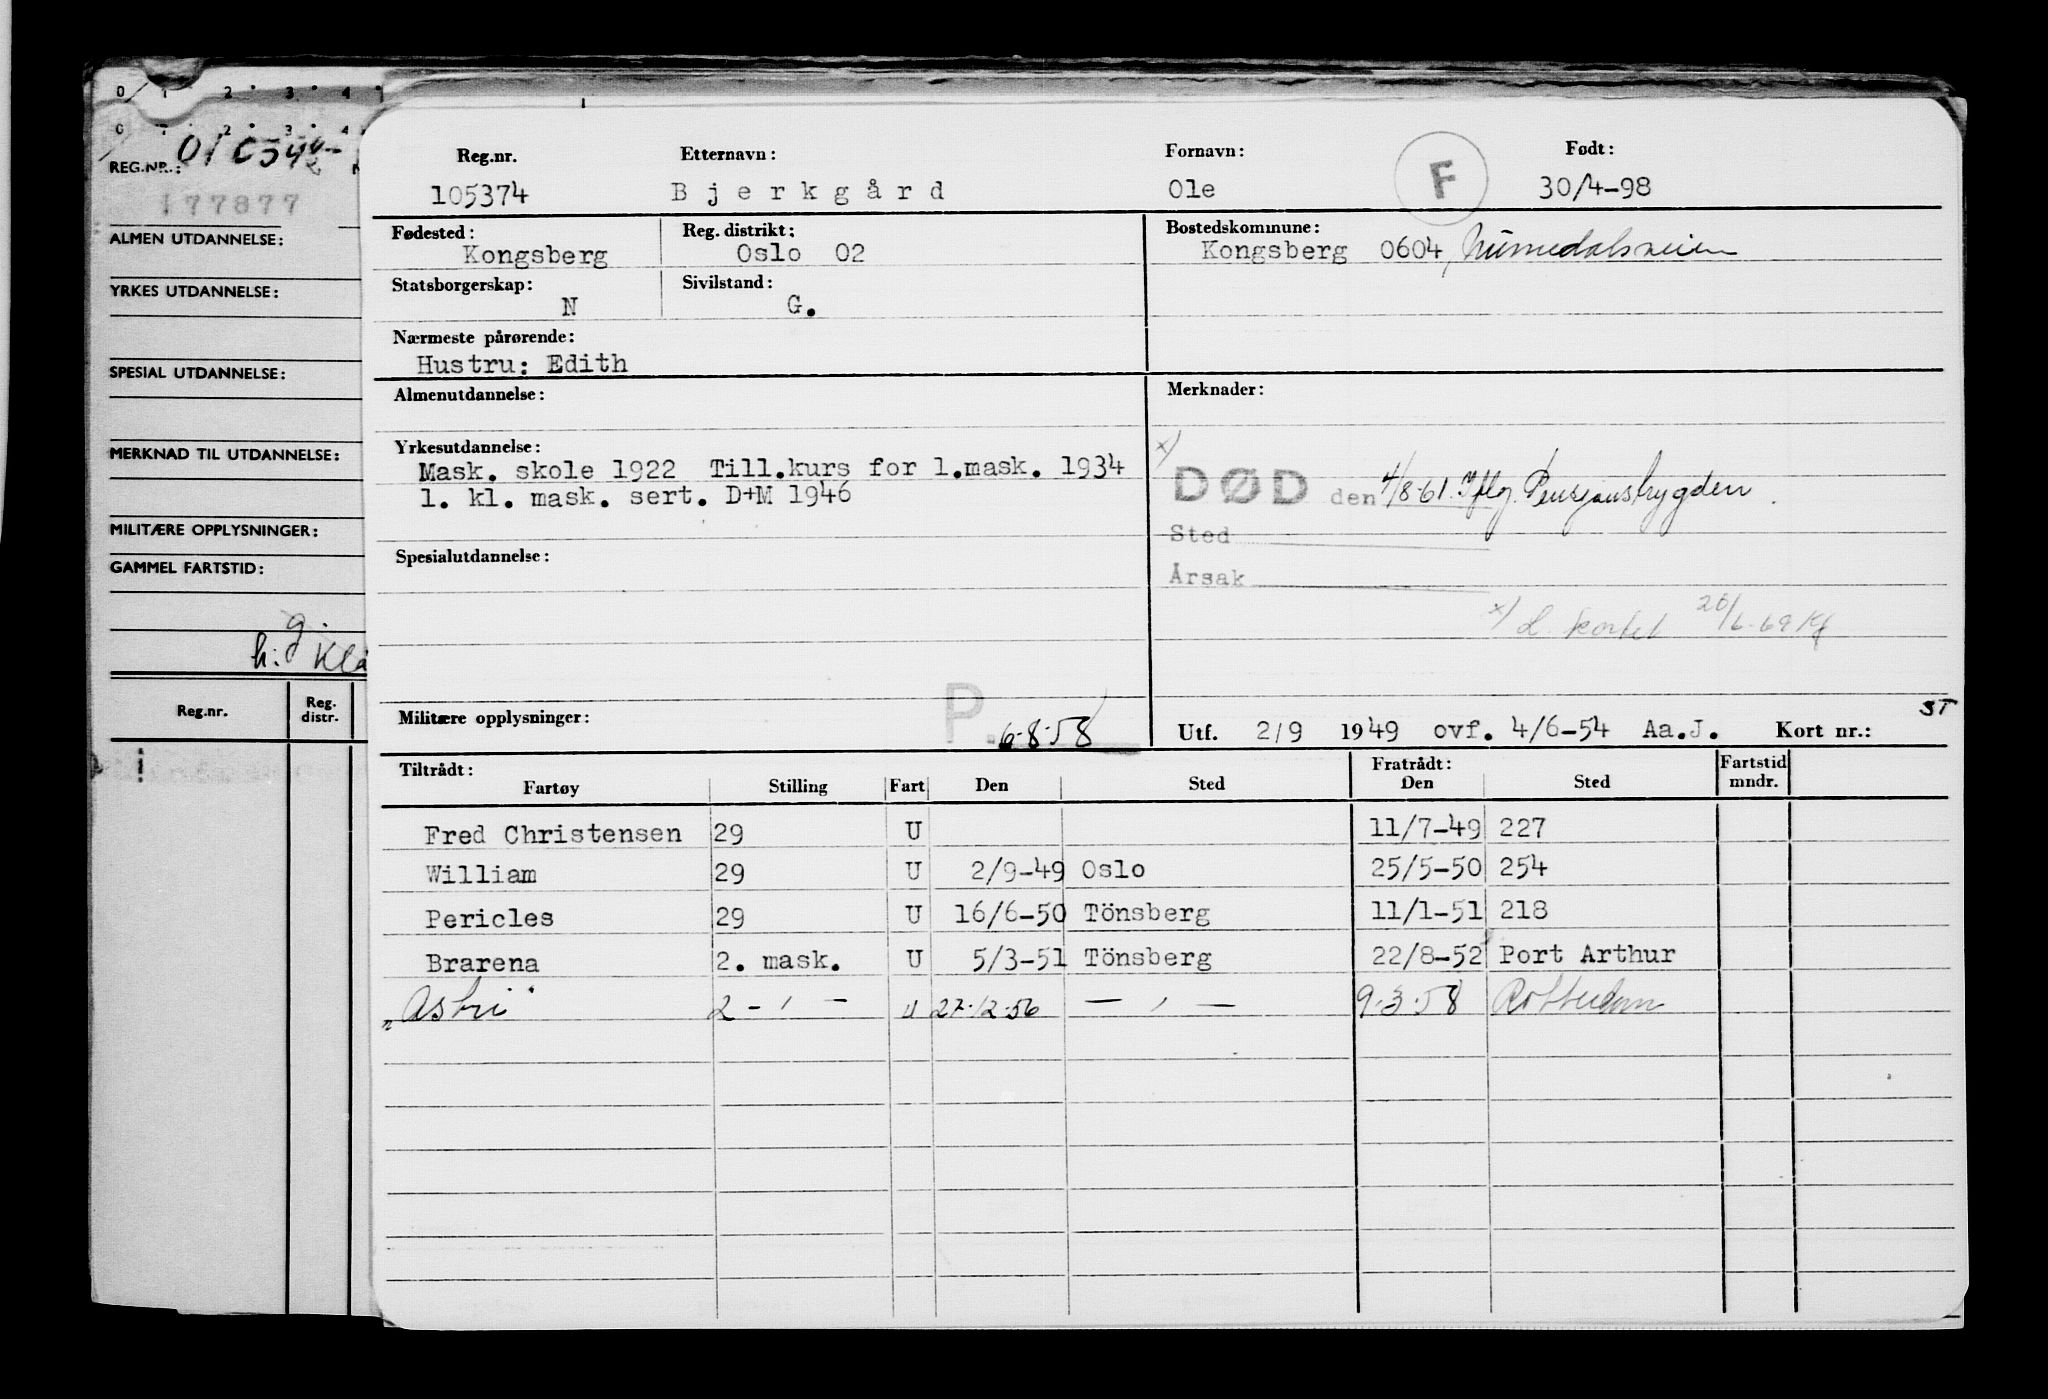 0 1 2 3 4
0 1 2 3 4
REG.NR.:
177877
ALMEN UTDANNELSE:
YRKES UTDANNELSE:
SPESIAL UTDANNELSE:
MERKNAD TIL UTDANNELSE:
MILITÆRE OPPLYSNINGER:
GAMMEL FARTSTID:
g.
h:
Reg.nr. Reg. distr.
Reg.nr. Etternavn: Fornavn: Født:
105374 Bjerkgård Ole F 30/4-98
Fødested: Reg. distrikt: Bostedskommune:
Kongsberg Oslo 02 Kongsberg 0604, Numedalsveien
Statsborgerskap: Sivilstand:
N G.
Nærmeste pårørende:
Hustru: Edith
Almenutdannelse: Merknader:
Yrkesutdannelse:
Mask. skole 1922 Till.kurs for 1.mask. 1934
1. kl. mask. sert. D+M 1946
x)
DØD den 4/8-61. Iflg. Pensjonstrygden.
Sted
Årsak
Spesialutdannelse:
x) d. kortet 26/6-69 Kf
Militære opplysninger: P. 6-8-58
Utf. 2/9 1949 ovf. 4/6-54 Aa.J. Kort nr.: ST
Tiltrådt: Fratrådt: Fartstid
Fartøy Stilling Fart Den Sted Den Sted mndr.
Fred Christensen 29 U 11/7-49 227
William 29 U 2/9-49 Oslo 25/5-50 254
Pericles 29 U 16/6-50 Tönsberg 11/1-51 218
Brarena 2. mask. U 5/3-51 Tönsberg 22/8-52 Port Arthur
"Astri" 2 - ' - U 27-12-56 — , — 9-3-58 Rotterdam